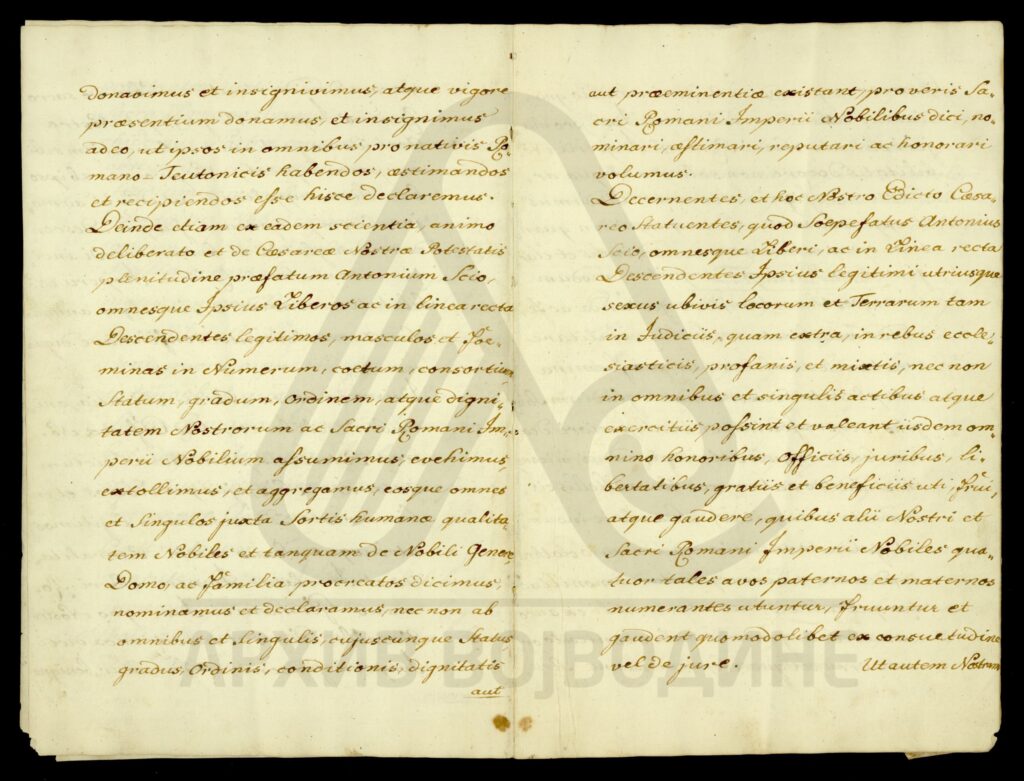 donavimus et insignivimus, atque vigore
præsentium donamus, et insignimus
adeo, ut ipsos in omnibus pro nativis Ro-
mano-Teutonicis habendos, æstimandos
et recipiendos esse hisce declaremus.
Deinde etiam ex eadem scientia, animo
deliberato et de Cæsareæ Nostræ Potestatis
plenitudine præfatum Antonium Scio,
omnesque Ipsius Liberos ac in linea recta
Descendentes legitimos, masculos et Foe-
minas in Numerum, coetum, consortium
Statum, gradum, Ordinem, atque digni-
tatem Nostrorum ac Sacri Romani Im-
perii Nobilium assumimus, evehimus,
extollimus, et aggregamus, eosque omnes
et Singulos juxta Sortis humanæ qualita-
tem Nobiles et tanquam de Nobili Genere
Domo, ac Familia procreatos dicimus,
nominamus et declaramus, nec non ab
omnibus et Singulis, cujuscunque Status,
gradus, Ordinis, conditionis, dignitatis
aut
aut præeminentiæ existant, pro veris Sa-
cri Romani Imperii Nobilibus dici, no-
minari, æstimari, reputari ac honorari
volumus.
Decernentes, et hoc Nostro Edicto Cæsa-
reo Statuentes, quod Soepefatus Antonius
Scio, omnesque Liberi, ac in Linea recta
Descendentes Ipsius legitimi utriusque
sexus ubivis locorum et Terrarum tam
in Judiciis, quam extra, in rebus eccle-
siasticis, profanis, et mixtis, nec non
in omnibus et singulis actibus atque
exercitiis possint et valeant iisdem om-
nino honoribus, Officiis, juribus, li-
bertatibus, gratiis et beneficiis uti, Frui,
atque gaudere, quibus alii Nostri et
Sacri Romani Imperii Nobiles qua-
tuor tales avos paternos et maternos
numerantes utuntur, Fruuntur et
gaudent quomodolibet ex consuetudine
vel de jure. Ut autem Nostram
АРХИВ ВОЈВОДИНЕ